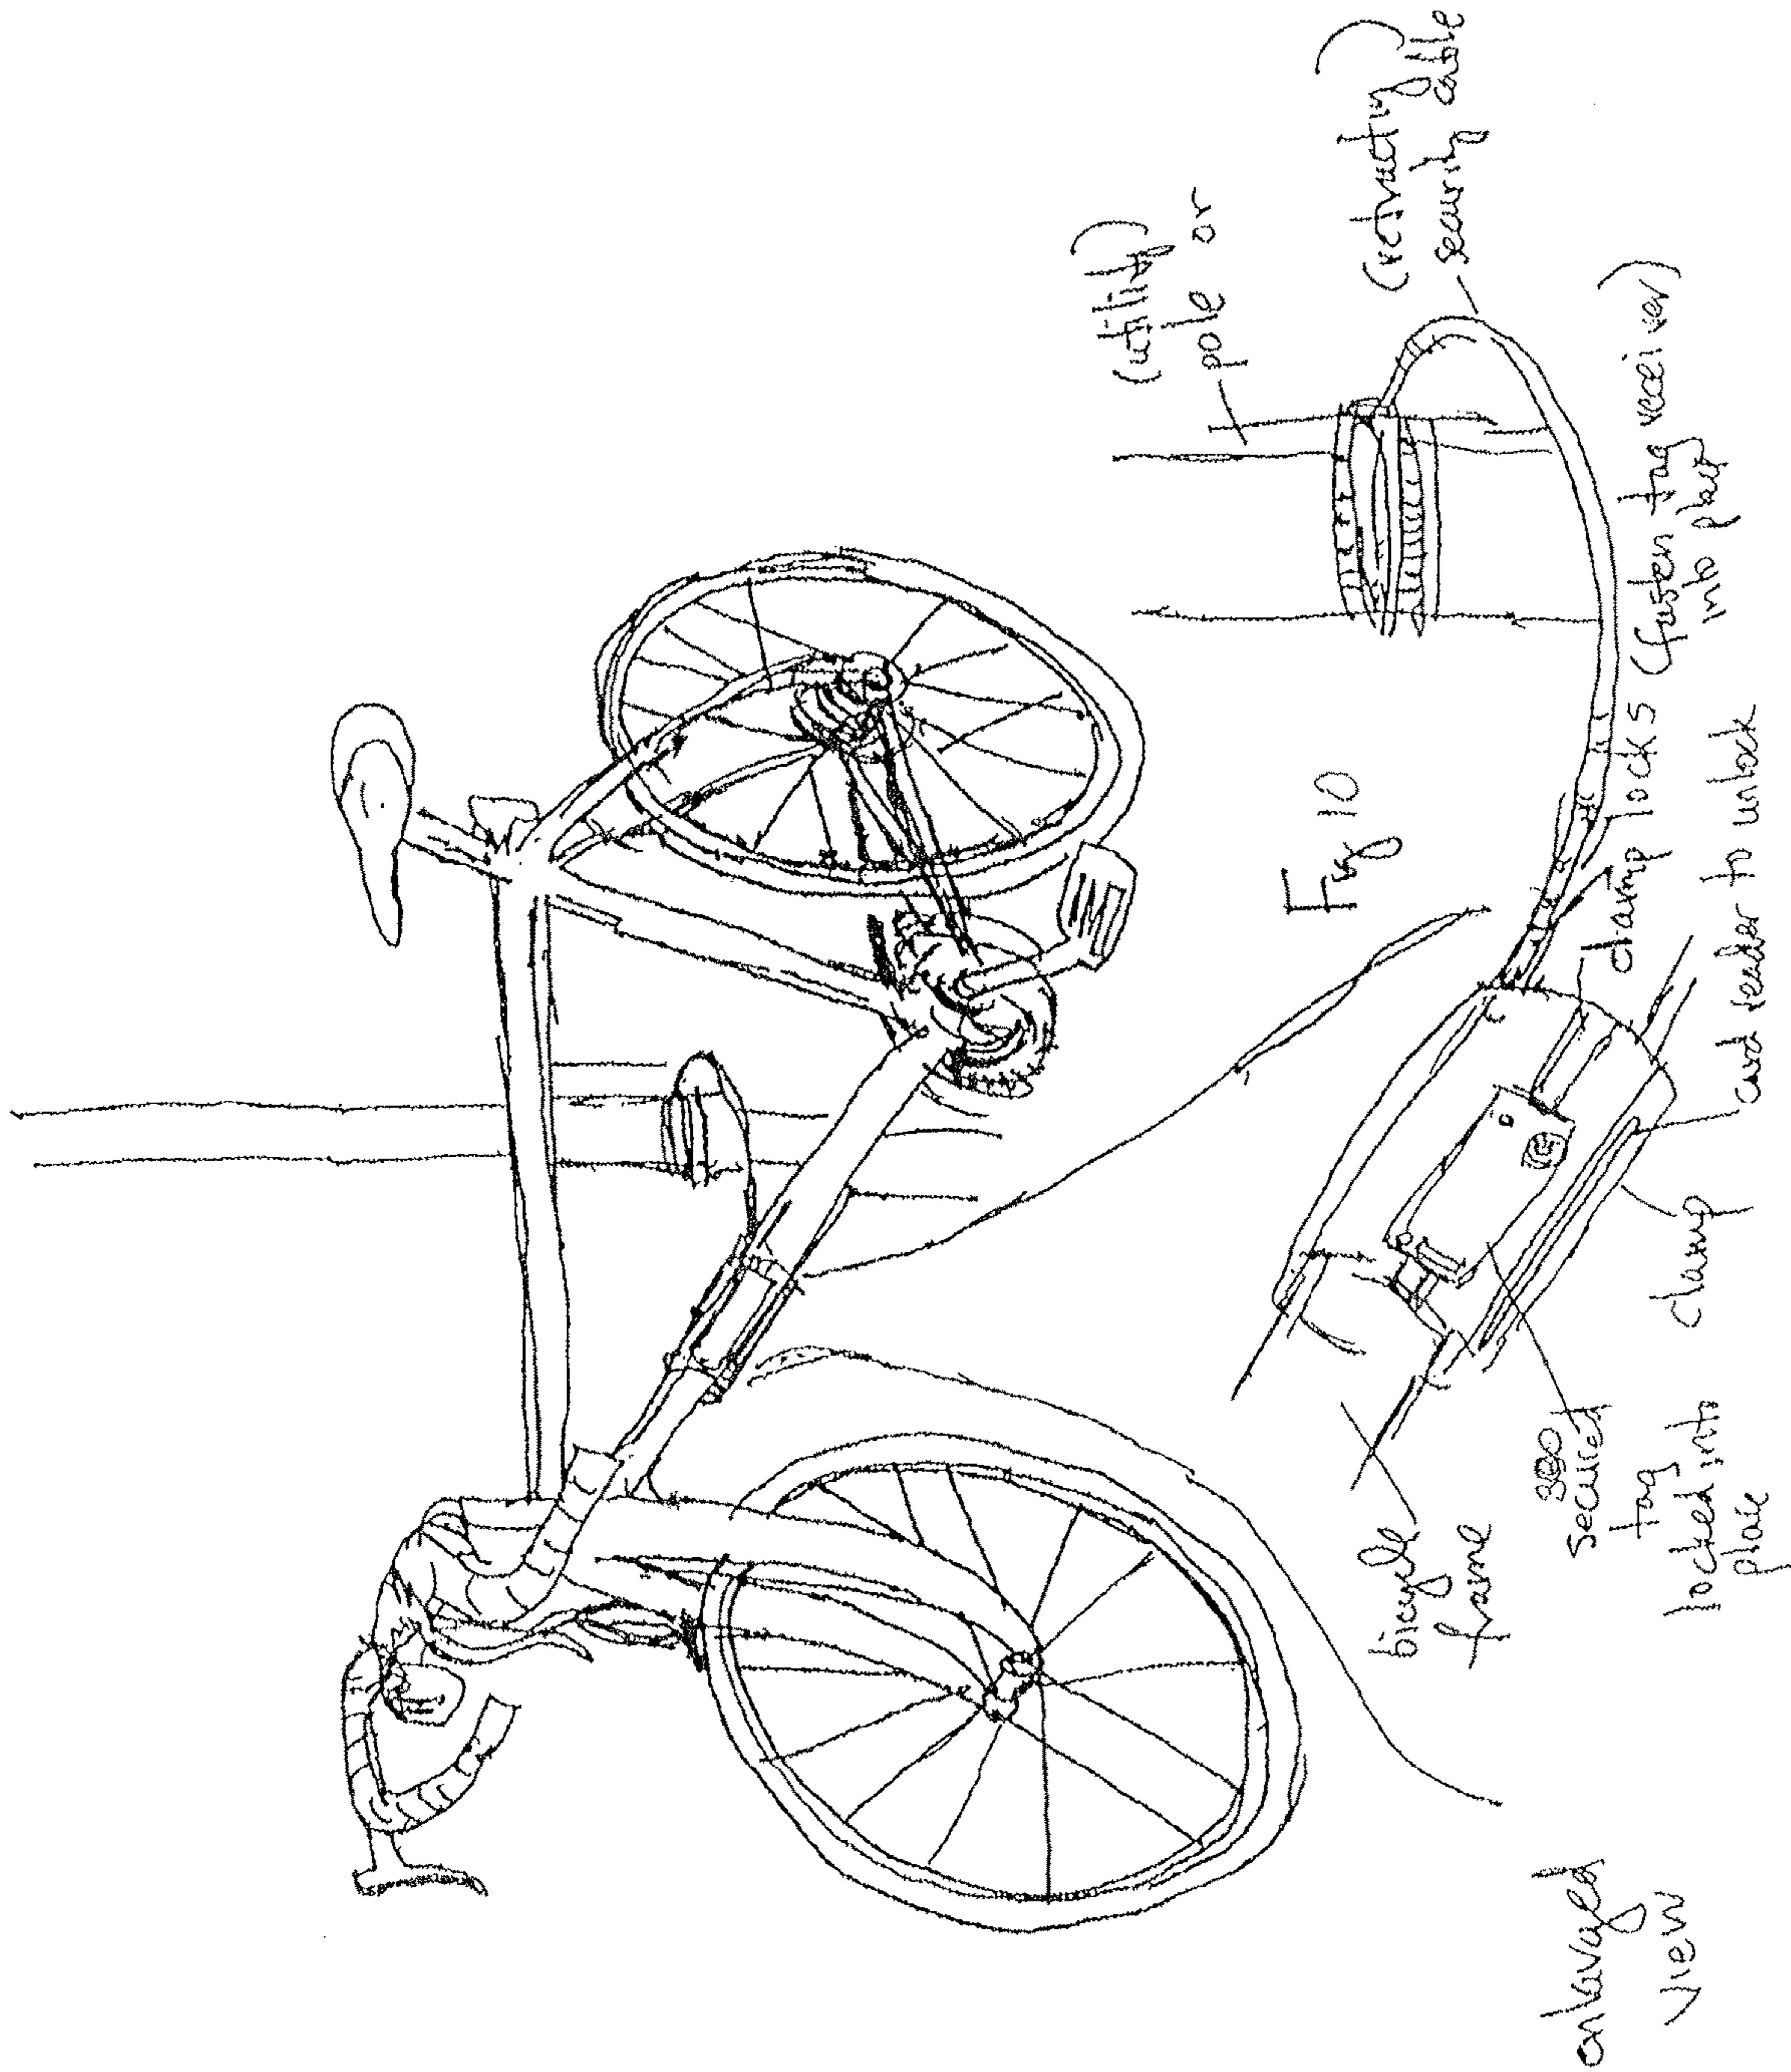 (utility)
pole or
(retracting)
securing cable
Fig 10
clamp locks (fasten tag receiver)
into place
card reader to unlock
clamp
bicycle
frame
secured
tag
locked into
place
enlarged
view